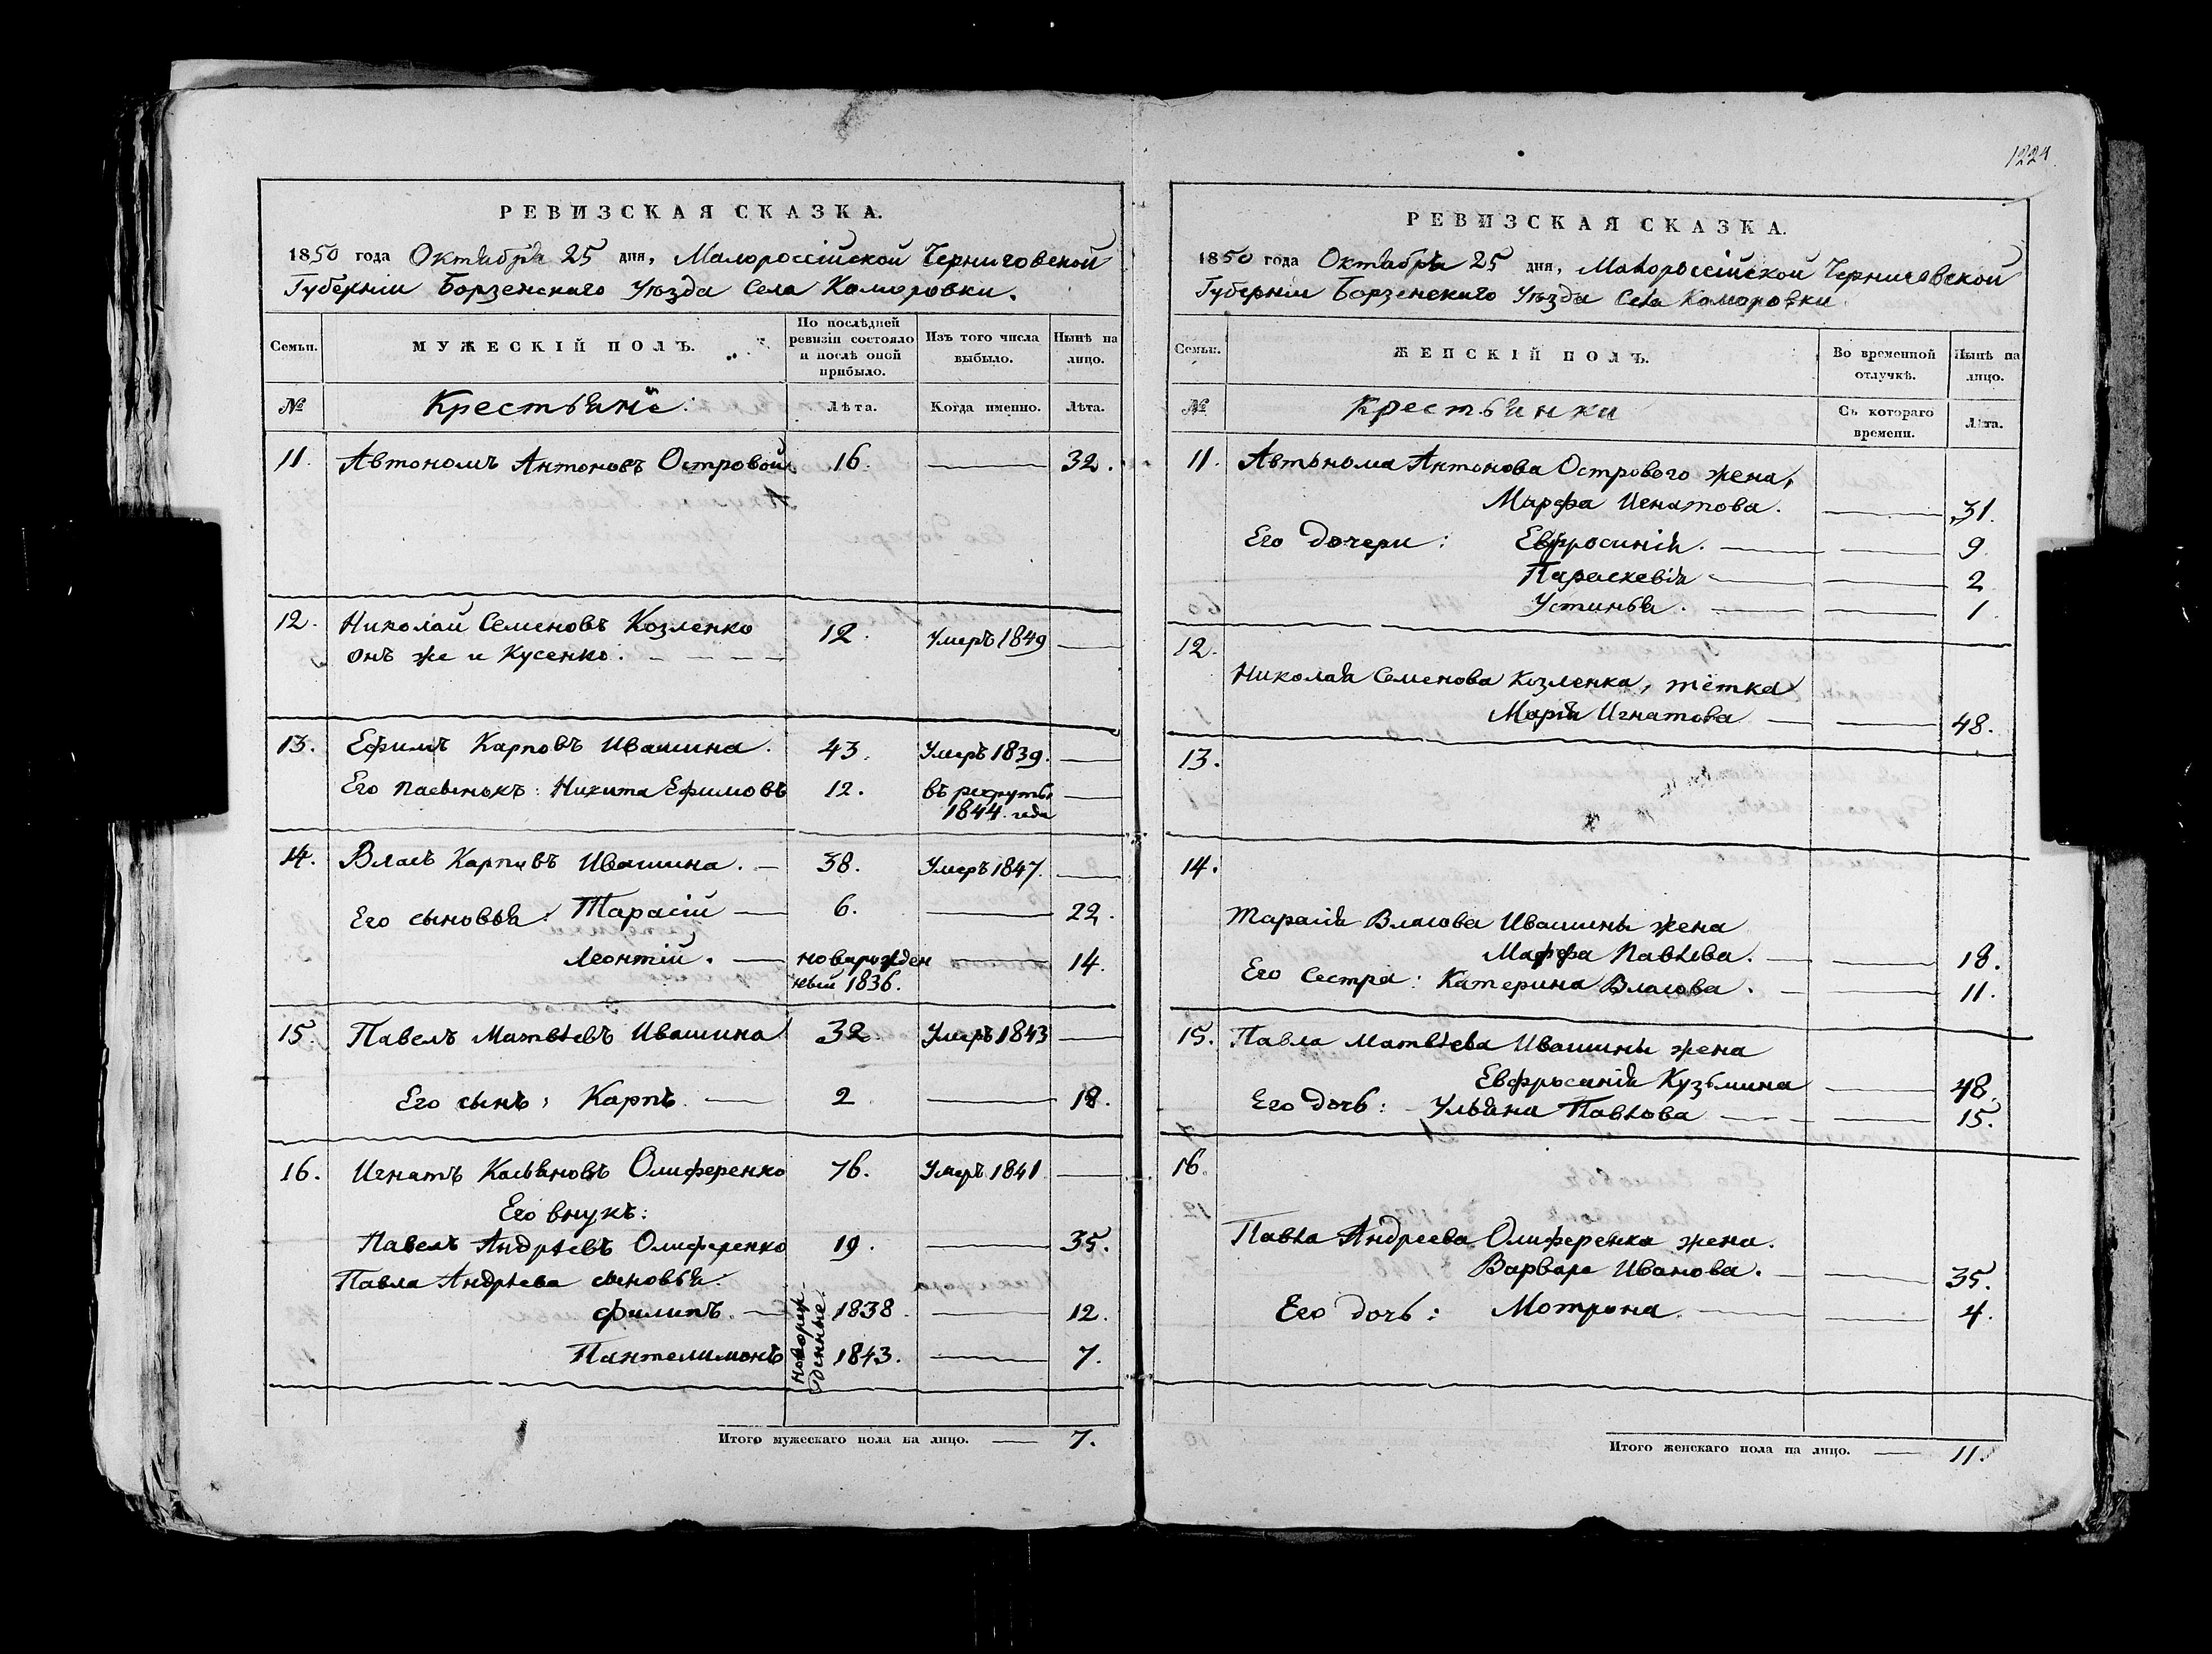 1224
РЕВИЗСКАЯ СКАЗКА.
1850 года Октября 25 дня, Малороссійской Черниговской
Губерніи Борзенскаго Уѣзда Села Комаровки.
Семьи.
МУЖЕСКІЙ ПОЛЪ.
По послѣдней ревизіи состояло и послѣ оной прибыло.
Изъ того числа выбыло.
Нынѣ на лицо.
№ Крестьяне: Лѣта. Когда именно. Лѣта.
11. Автономъ Антоновъ Островой 16. — 32.
12. Николай Семеновъ Козленко 12. Умеръ 1849 —
онъ же и Кусенко.
13. Ефимъ Карповъ Ивашина. 43. Умеръ 1839. —
Его пасынокъ: Никита Ефимовъ 12. въ рекруты —
1844 года
14. Власъ Карповъ Ивашина. — 38. Умеръ 1847. —
Его сыновья: Тарасій — 6. — 22.
Леонтій. — новорожден — 14.
ный 1836.
15. Павелъ Матвѣевъ Ивашина 32. Умеръ 1843 —
Его сынъ, Карпъ — 2 — 18.
16. Игнатъ Касьяновъ Олиференко 76. Умеръ 1841 —
Его внукъ:
Павелъ Андрѣевъ Олиференко 19. — 35.
Павла Андрѣева сыновья:
новорожденные
Филипъ. — 1838. — 12.
Пантелимонъ 1843. — 7.
Итого мужескаго пола на лицо. — 7.
РЕВИЗСКАЯ СКАЗКА.
1850 года Октября 25 дня, Малороссійской Черниговской
Губерніи Борзенскаго Уѣзда Села Комаровки
Семьи.
ЖЕНСКІЙ ПОЛЪ.
Во временной отлучкѣ.
Нынѣ на лицо.
№ Крестьянки Съ котораго времени. Лѣта.
11. Автонома Антонова Острового жена,
Марфа Игнатова. — 31.
Его дочери: Евфросинія. — — 9
Параскевія — — 2
Устинья. — — 1.
12.
Николая Семенова Козленка, тётка
Марія Игнатова — — 48.
13.
14.
Тарасія Власова Ивашины жена
Марфа Павлова. — — 18.
Его Сестра: Катерина Власова. — — 11.
15. Павла Матвѣева Ивашины жена
Евфросинія Кузьмина — 48.
Его дочь: Ульяна Павлова — — 15.
16.
Павла Андреева Олиференка жена.
Варвара Иванова. — — 35.
Его дочь: Мотрона. — — 4.
Итого женскаго пола на лицо. — 11.